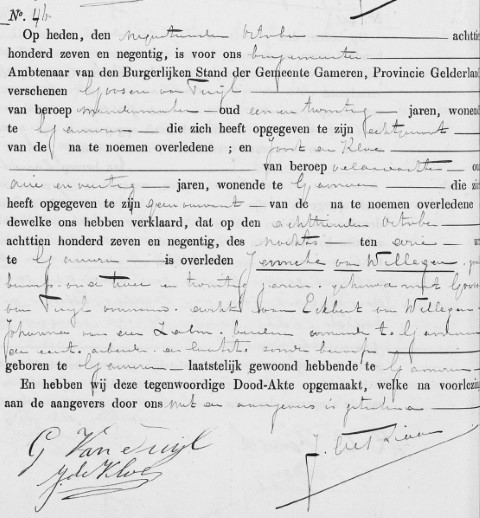 No. 46
Op heden, den negentienden October achttie
honderd zeven en negentig, is voor ons burgemeester
Ambtenaar van den Burgerlijken Stand der Gemeente Gameren, Provincie Gelderlan
verschenen Goosen van Tuijl
van beroep mandenmaker oud een en twintig jaren, wonend
te Gameren die zich heeft opgegeven te zijn echtgenoot
van de na te noemen overledene ; en Joost de Kloe
van beroep veldwachter ou
drie en veertig jaren, wonende te Gameren die zic
heeft opgegeven te zijn geen verwant van de na te noemen overledene
dewelke ons hebben verklaard, dat op den achttienden October
achttien honderd zeven en negentig, des nachts ten drie u
te Gameren is overleden Jenneke van Willegen
beroep oud twee en twintig jaren gehuwd met Goosen
van Tuijl dochter van Eckbert van Willegen
Johanna van der Zalm beiden wonende te Gameren
de eerste arbeider de laatste zonder beroep
geboren te Gameren laatstelijk gewoond hebbende te Gameren
En hebben wij deze tegenwoordige Dood-Akte opgemaakt, welke na voorlezin
aan de aangevers door ons met de aangevers is geteekend
G Van Tuijl
J. de Kloe